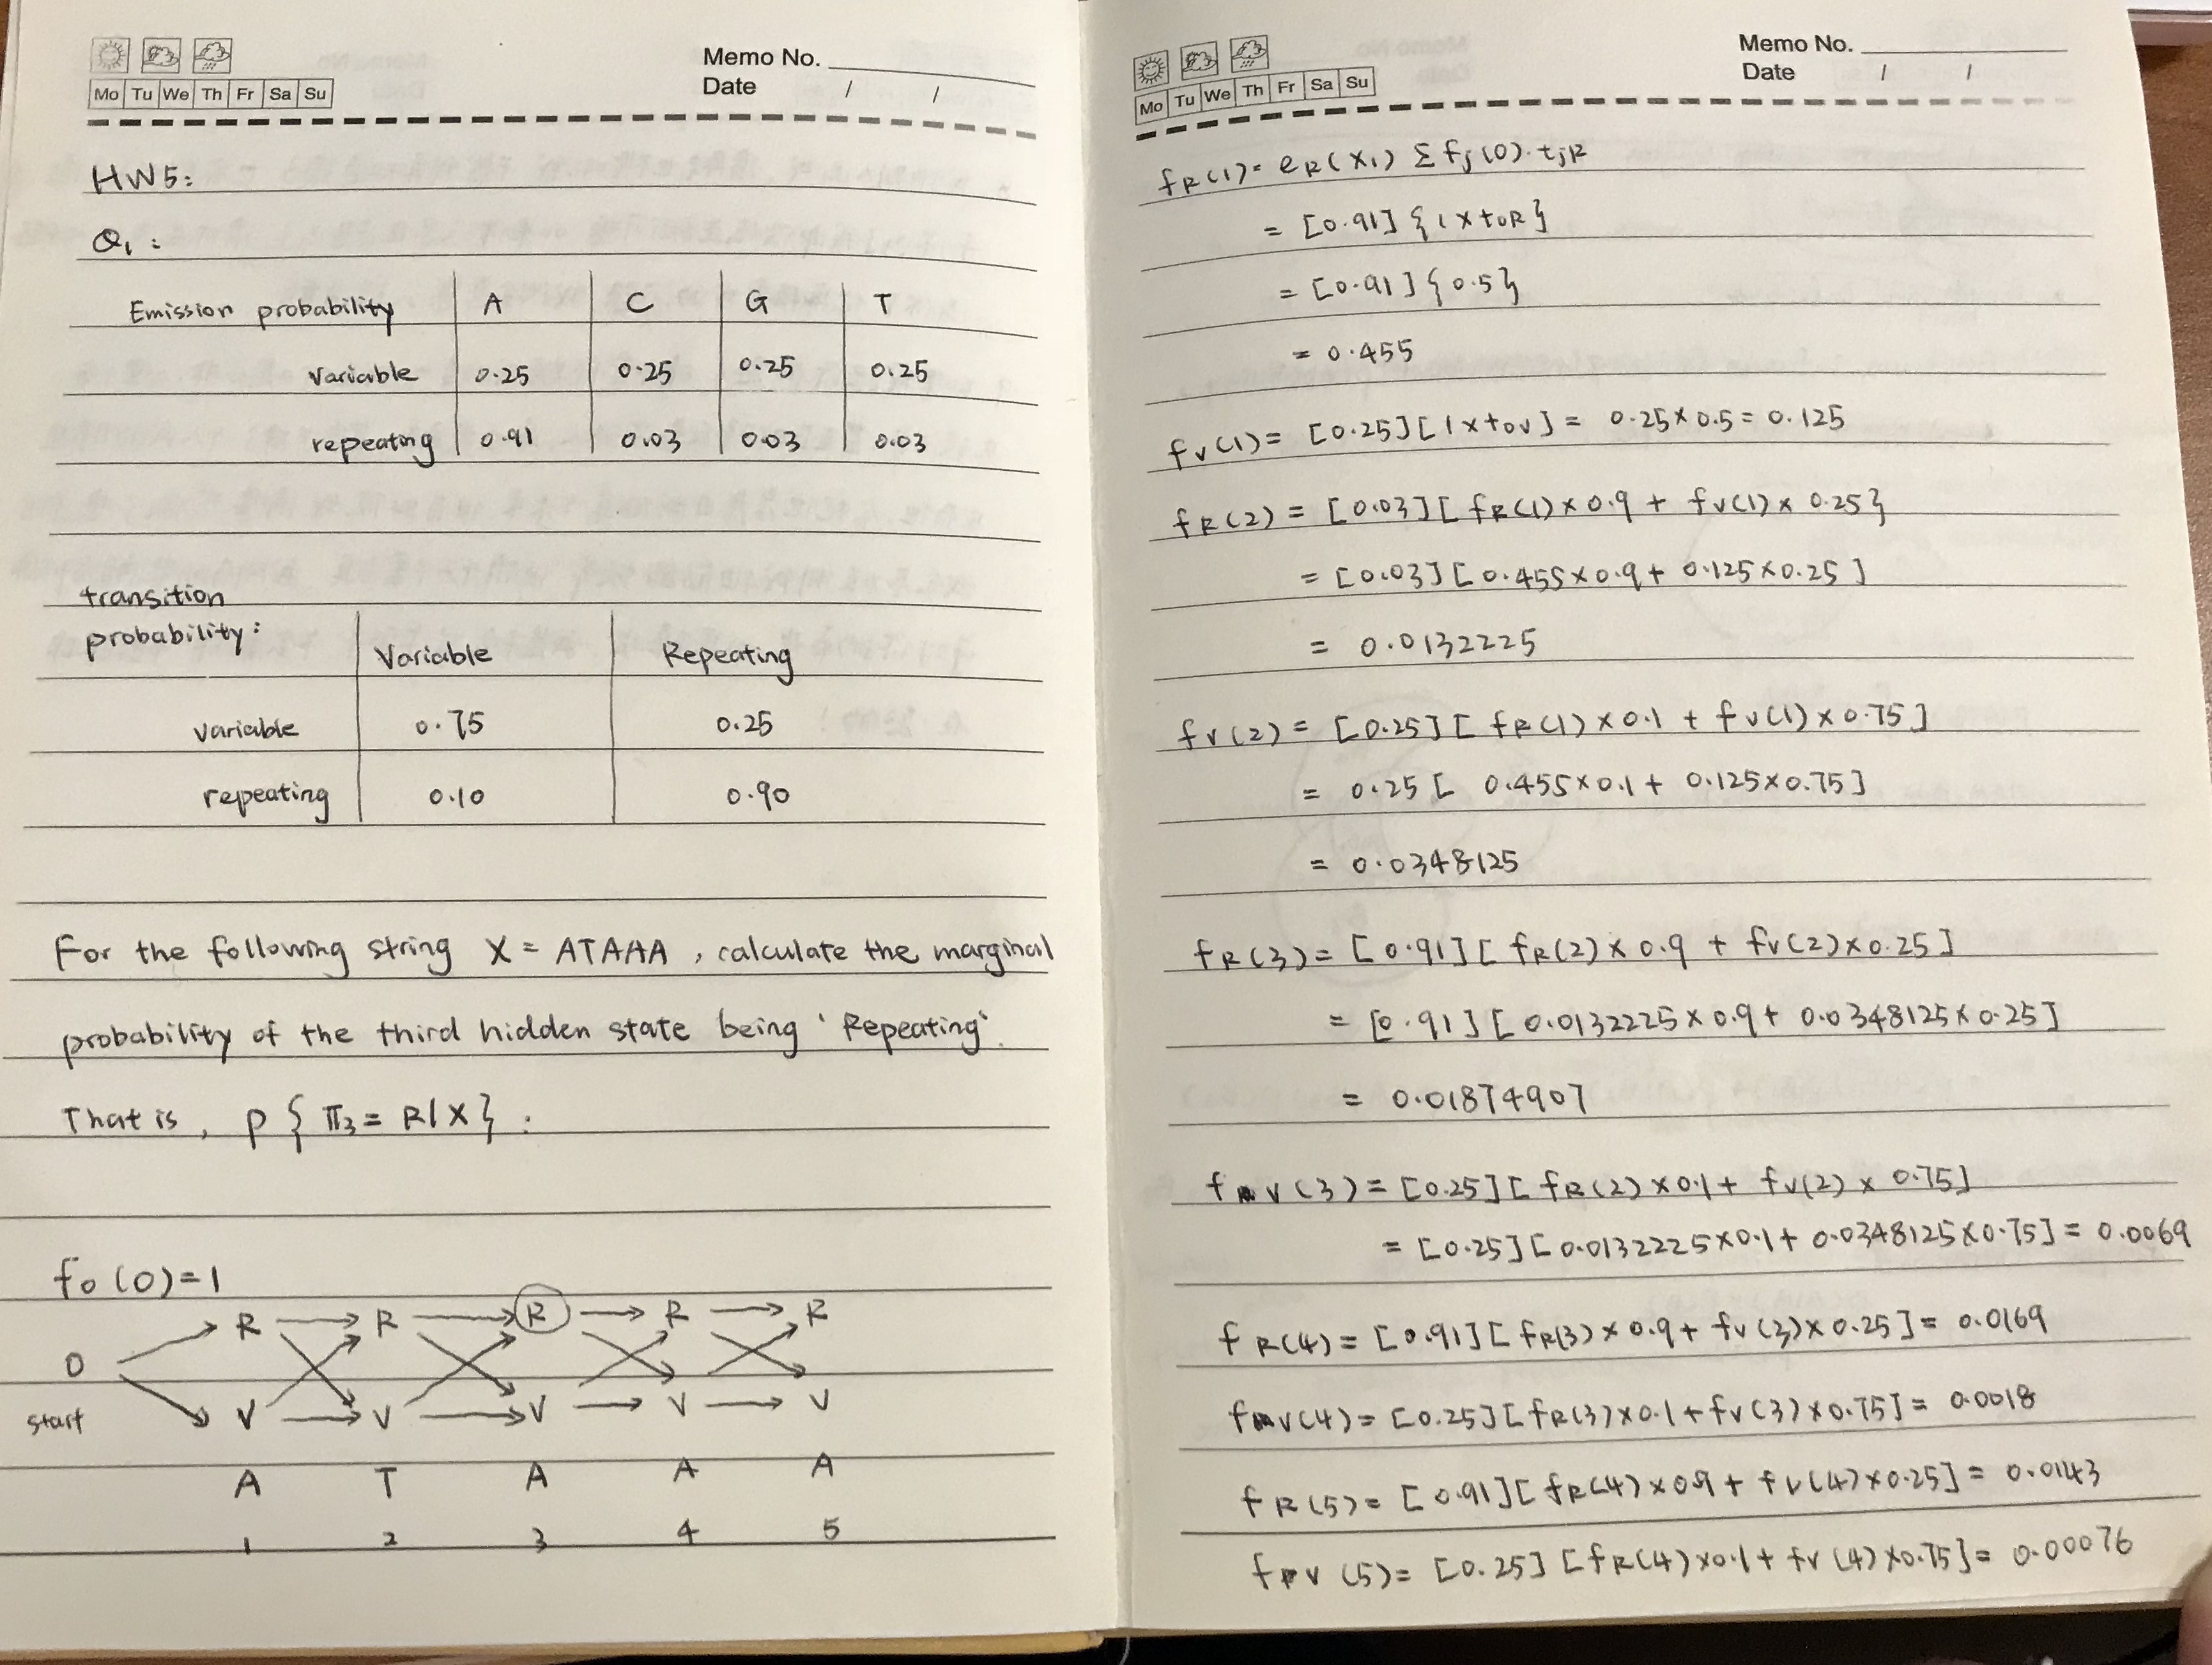 Memo No.
Date / /
Mo Tu We Th Fr Sa Su
HW5:
Q1:
Emission probability A C G T
variable 0.25 0.25 0.25 0.25
repeating 0.91 0.03 0.03 0.03
transition
probability: Variable Repeating
variable 0.75 0.25
repeating 0.10 0.90
For the following string X = ATAAA, calculate the marginal
probability of the third hidden state being 'Repeating'.
That is, P{π3 = R|X}:
f0(0)=1
R R R R R
0
start V V V V V
A T A A A
1 2 3 4 5
Memo No.
Date / /
Mo Tu We Th Fr Sa Su
fR(1) = eR(X1) Σ fj(0)·tjR
= [0.91] {1×t0R}
= [0.91] {0.5}
= 0.455
fV(1) = [0.25][1×t0V] = 0.25×0.5 = 0.125
fR(2) = [0.03][fR(1)×0.9 + fV(1)×0.25}
= [0.03][0.455×0.9 + 0.125×0.25]
= 0.0132225
fV(2) = [0.25][fR(1)×0.1 + fV(1)×0.75]
= 0.25[0.455×0.1 + 0.125×0.75]
= 0.0348125
fR(3) = [0.91][fR(2)×0.9 + fV(2)×0.25]
= [0.91][0.0132225×0.9 + 0.0348125×0.25]
= 0.01874907
fV(3) = [0.25][fR(2)×0.1 + fV(2)×0.75]
= [0.25][0.0132225×0.1 + 0.0348125×0.75] = 0.0069
fR(4) = [0.91][fR(3)×0.9 + fV(3)×0.25] = 0.0169
fV(4) = [0.25][fR(3)×0.1 + fV(3)×0.75] = 0.0018
fR(5) = [0.91][fR(4)×0.9 + fV(4)×0.25] = 0.0143
fV(5) = [0.25][fR(4)×0.1 + fV(4)×0.75] = 0.00076